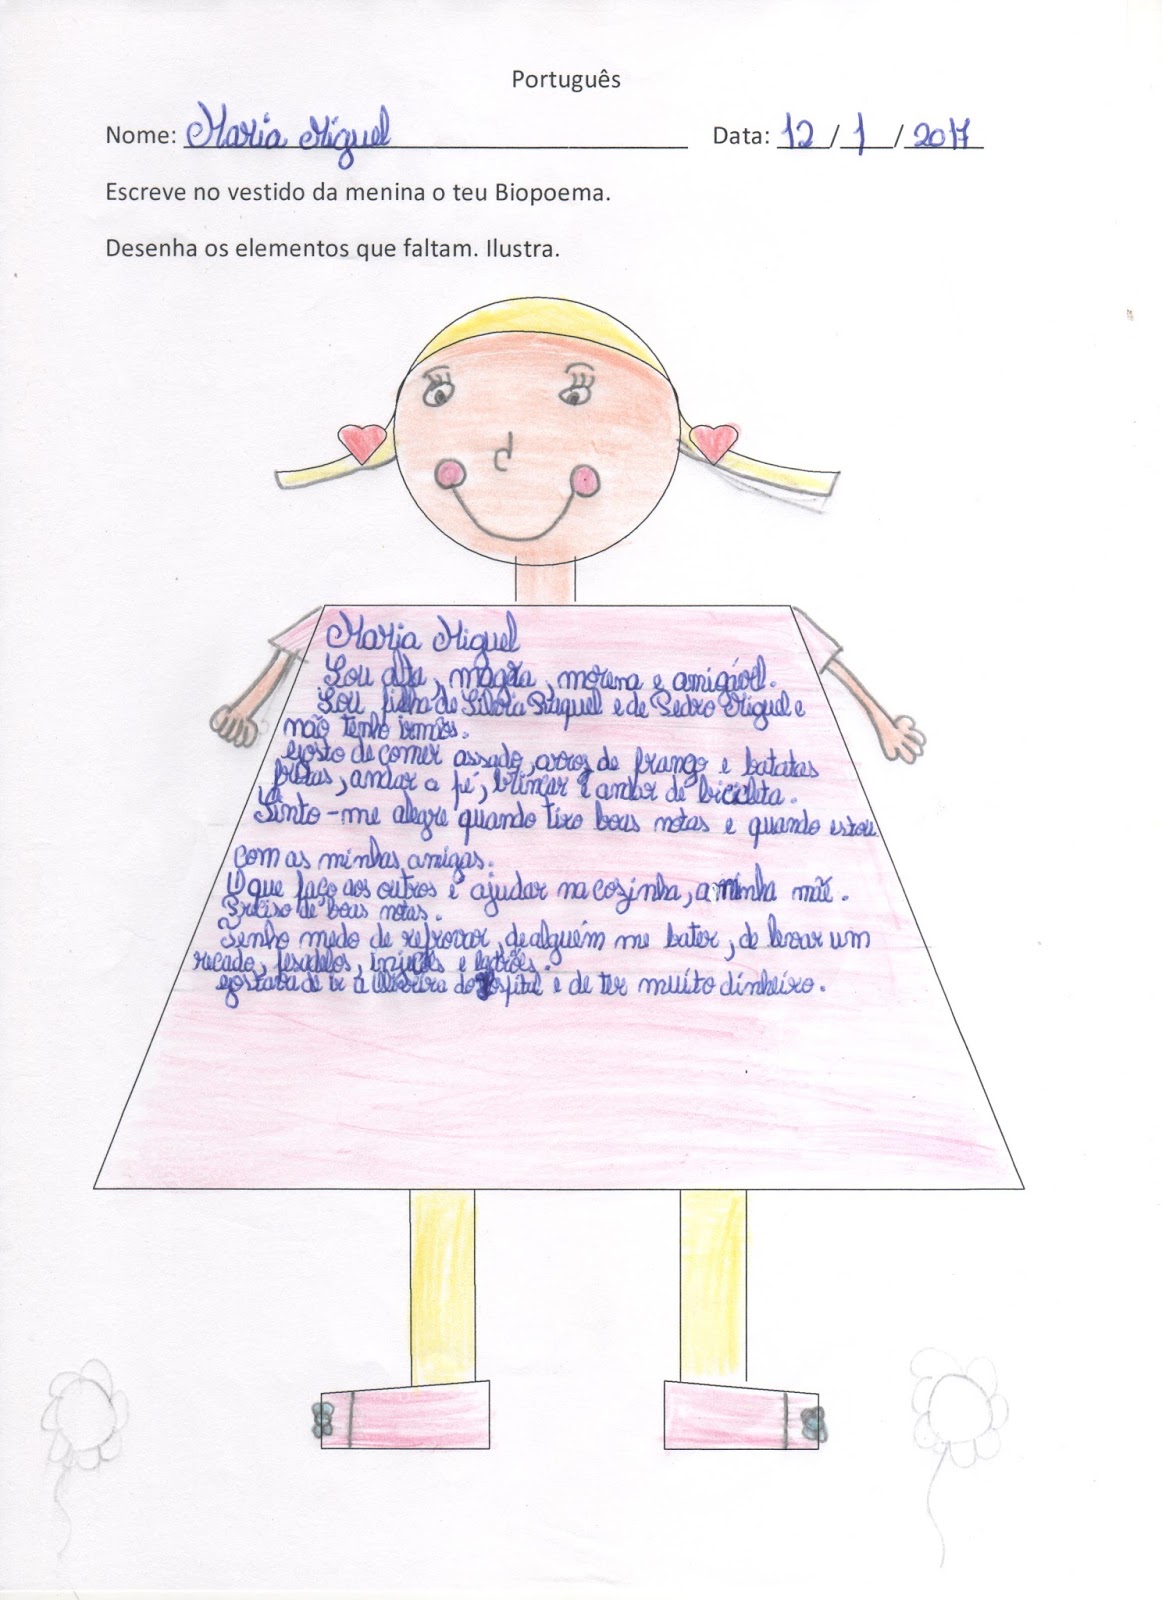 Português
Nome: Maria Miguel Data: 12/1/2017
Escreve no vestido da menina o teu Biopoema.
Desenha os elementos que faltam. Ilustra.
Maria Miguel
Sou alta, magra, morena e amigável.
Sou filha de Sílvia Raquel e de Pedro Miguel e
não tenho irmãos.
Gosto de comer assado, arroz de frango e batatas
fritas, andar a pé, brincar e andar de bicicleta.
Sinto-me alegre quando tiro boas notas e quando estou
com as minhas amigas.
O que faço aos outros é ajudar na cozinha, a minha mãe.
Preciso de boas notas.
Tenho medo de reprovar, de alguém me bater, de levar um
recado, pesadelos, injeções e ladrões.
Gostava de ir à do e de ter muito dinheiro.